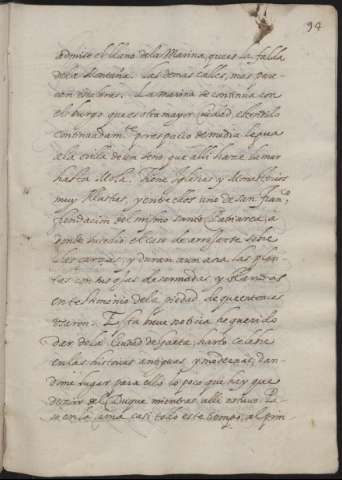 94
admite el llano de la Marina, que es la falda
de la Montaña. Las demas calles, mas pare-
cen escaleras. La marina se continua con
el burgo que es otra mayor ciudad, estendido
continuadam.te por espacio de media legua
a la orilla de un seno, que alli haze la mar
hasta Mola. Tiene Iglesias y Monasterios
muy Illustres, y entre ellos uno de san fran.co
fundacion del mismo santo Patriarca, a
donde sucedio el caso de arrojarse sobre
las carzas, y duran aun oy las plan-
tas con sus ojas desarmadas, y blandas
en testimonio de la piedad de que entonces
usaron. Esta breve noticia he querido
dar de la Ciudad de Gaeta, harto celebre
en las historias antiguas, y modernas, dan-
dome lugar para ello lo poco que hay que
dezir del Duque mientras alli estuvo. Pa-
so en la cama casi todo este tiempo, al prin-